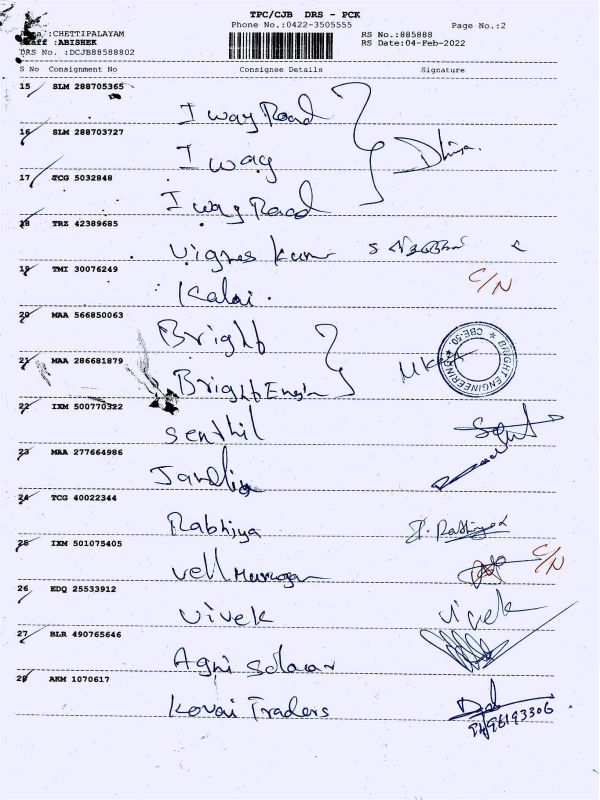 TPC/CJB DRS - PCK
Phone No.:0422-3505555
Page No.:2
:CHETTIPALAYAM
Staff :ABISHEK
DRS No. :DCJB88588802
RS No.:885888
RS Date:04-Feb-2022
S No Consignment No Consignee Details Signature
15 SLM 288705365
I way Road
16 SLM 288703727
I way
Dhiya.
17 TCG 5032848
I way Road
18 TRZ 42389685
Vignes kumr
19 TMI 30076249
Kalai.
C/N
20 MAA 566850063
Bright
21 MAA 286681879
Bright Engin
BRIGHT ENGINEERING * CBE-50. *
22 IXM 500770322
Senthil
23 MAA 277664986
24 TCG 40022344
Rabhiya
25 IXM 501075405
vell Murugan
C/N
26 EDQ 25533912
Vivek
Vivek
27 BLR 490765646
Agni Solaar
28 AKM 1070617
Kovai Traders